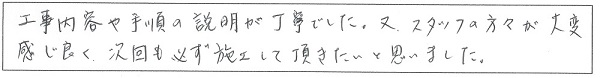 工事内容や手順の説明が丁寧でした。又、スタッフの方々が大変
感じ良く、次回も必ず施工して頂きたいと思いました。